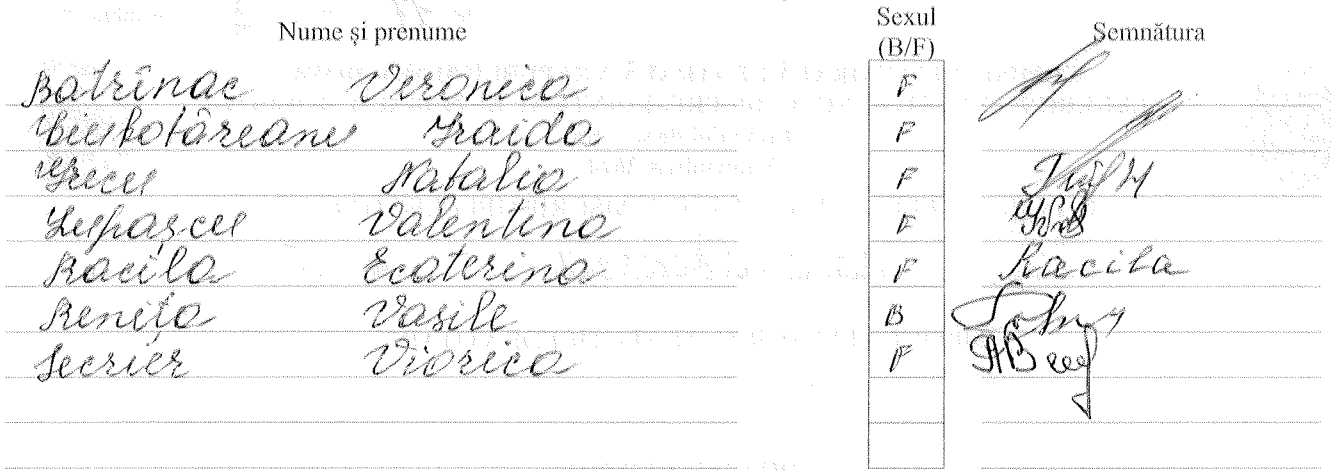 Nume și prenume Sexul (B/F) Semnătura
Batrînac Veronica F
Ciubotăreanu Zraida F
Grecu Natalia F
Lupașcu Valentina F
Racila Ecaterina F Racila
Renița Vasile B
Secrier Viorica F